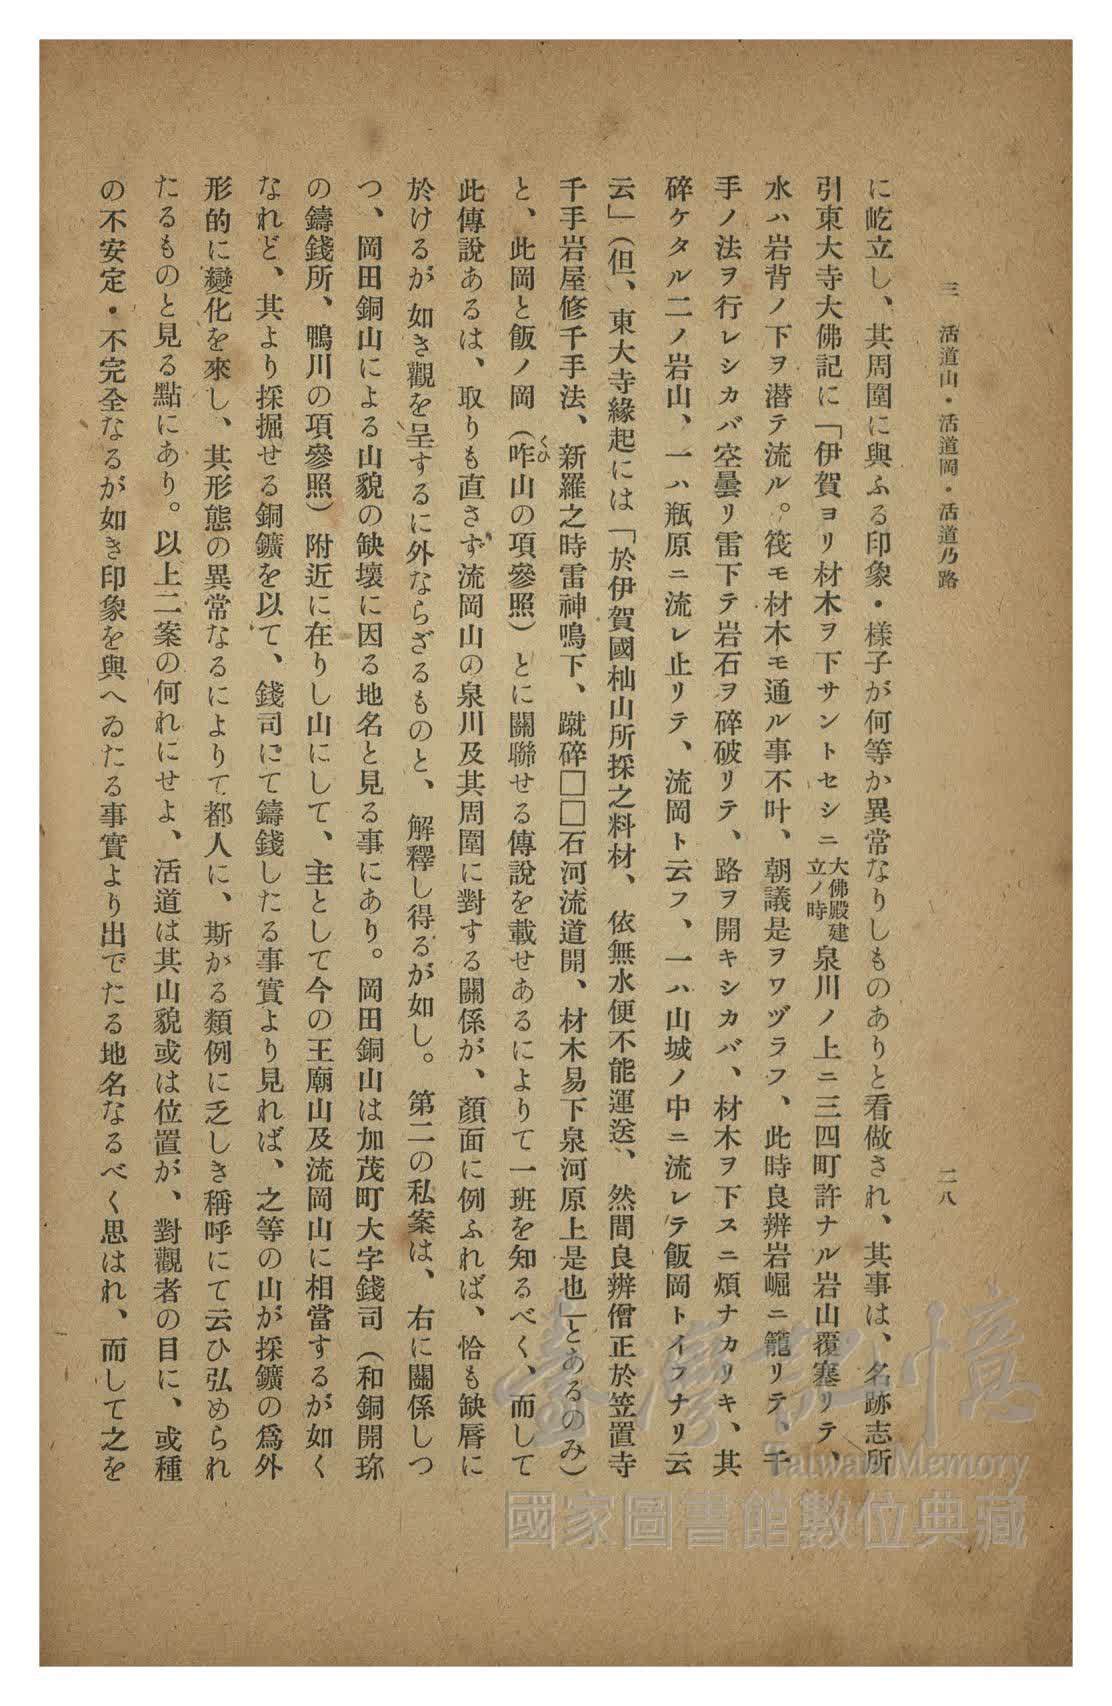 三　活道山・活道岡・活道乃路
二八
に屹立し、其周圍に與ふる印象・樣子が何等か異常なりしものありと看做され、其事は、名跡志所
引東大寺大佛記に「伊賀ヨリ材木ヲ下サントセシニ大佛殿建立ノ時泉川ノ上ニ三四町許ナル岩山覆塞リテ、
水ハ岩背ノ下ヲ潜テ流ル。筏モ材木モ通ル事不叶、朝議是ヲワヅラフ、此時良辨岩崛ニ籠リテ、千
手ノ法ヲ行レシカバ空曇リ雷下テ岩石ヲ碎破リテ、路ヲ開キシカバ、材木ヲ下スニ煩ナカリキ、其
碎ケタル二ノ岩山、一ハ瓶原ニ流レ止リテ、流岡ト云フ、一ハ山城ノ中ニ流レテ飯岡トイフナリ云
云」（但、東大寺緣起には「於伊賀國杣山所採之料材、依無水便不能運送、然間良辨僧正於笠置寺
千手岩屋修千手法、新羅之時雷神鳴下、蹴碎□□石河流道開、材木易下泉河原上是也」とあるのみ）
と、此岡と飯ノ岡（咋くひ山の項參照）とに關聯せる傳說を載せあるによりて一班を知るべく、而して
此傳說あるは、取りも直さず流岡山の泉川及其周圍に對する關係が、顏面に例ふれば、恰も缺脣に
於けるが如き觀を呈するに外ならざるものと、解釋し得るが如し。第二の私案は、右に關係しつ
つ、岡田銅山による山貌の缺壞に因る地名と見る事にあり。岡田銅山は加茂町大字錢司（和銅開珎
の鑄錢所、鴨川の項參照）附近に在りし山にして、主として今の王廟山及流岡山に相當するが如く
なれど、其より採掘せる銅鑛を以て、錢司にて鑄錢したる事實より見れば、之等の山が採鑛の爲外
形的に變化を來し、其形態の異常なるによりて都人に、斯かる類例に乏しき稱呼にて云ひ弘められ
たるものと見る點にあり。以上二案の何れにせよ、活道は其山貌或は位置が、對觀者の目に、或種
の不安定・不完全なるが如き印象を與へゐたる事實より出でたる地名なるべく思はれ、而して之を
臺灣記憶
Taiwan Memory
國家圖書館數位典藏